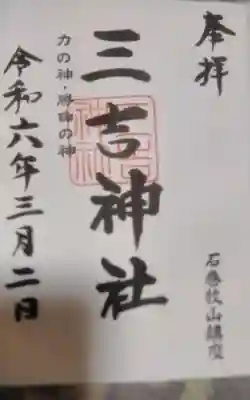 奉拝
石巻牧山鎮座
三吉神社
力の神・勝負の神
令和六年三月二日